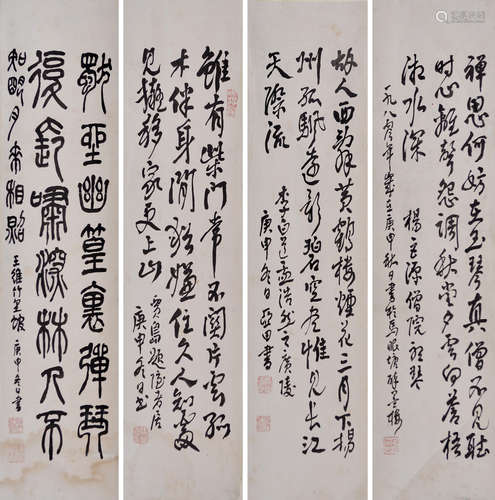 禪思何妨在玉琴真僧不見聽
時心離聲怨調秋堂夕雲向蒼梧
湘水深 楊巨源僧院聽琴
一九八零年歲在庚申秋日書於馬眼塘醉墨樓
故人西辭黃鶴樓煙花三月下揚
州孤帆遠影碧空盡惟見長江
天際流 李白送孟浩然之廣陵
庚申冬日亞田書
雖有柴門常不關片雲孤
木伴身閒猶嫌住久人知處
見擬移家更上山 賈島題隱者居
庚申冬日書
獨坐幽篁裏彈琴
復長嘯深林人不
知明月來相照 王維竹里館 庚申冬日書